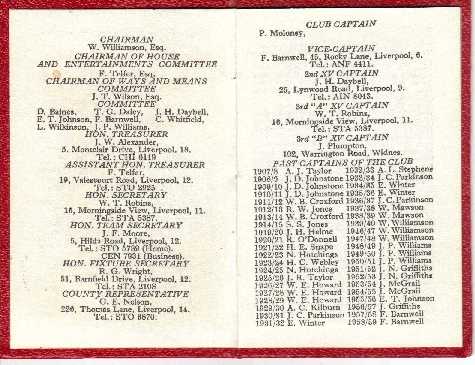 CHAIRMAN
W. Williamson, Esq.
CHAIRMAN OF HOUSE
AND ENTERTAINMENTS COMMITTEE
F. Telfer, Esq.
CHAIRMAN OF WAYS AND MEANS
COMMITTEE
J. T. Wilson, Esq.
COMMITTEE
D. Baines, T. G. Daley, J. H. Daybell,
E. T. Johnson, F. Barnwell, C. Whitfield,
L. Wilkinson, J. P. Williams.
HON. TREASURER
J. W. Alexander,
5, Montclair Drive, Liverpool, 18.
Tel.: CHI 6419
ASSISTANT HON. TREASURER
F. Telfer,
19, Valescourt Road, Liverpool, 12.
Tel.: STO
HON. SECRETARY
W. T. Robins,
16, Morningside View, Liverpool, 11.
Tel.: STA 5357.
HON. TEAM SECRETARY
J. F. Moore,
5, Hilda Road, Liverpool, 12.
Tel.: STO 5789 (Home).
CEN 7931 (Business).
HON. FIXTURE SECRETARY
R. G. Wright,
31, Barnfield Drive, Liverpool, 12.
Tel.: STA 2108
COUNTY REPRESENTATIVE
C. E. Nelson,
226, Thomas Lane, Liverpool, 14.
Tel.: STO 8670.
CLUB CAPTAIN
P. Moloney,
VICE-CAPTAIN
F. Barnwell, 45, Rocky Lane, Liverpool, 6.
Tel.: ANF 4411.
2nd XV CAPTAIN
J. H. Daybell,
25, Lynwood Road, Liverpool, 9.
Tel.: AIN 8043.
3rd "A" XV CAPTAIN
W. T. Robins,
16, Morningside View, Liverpool, 11.
Tel.: STA 5357.
3rd "B" XV CAPTAIN
J. Plumpton,
102, Warrington Road, Widnes.
PAST CAPTAINS OF THE CLUB
1907/8 A. J. Taylor 1932/33 A. L. Stephens
1908/9 J. D. Johnstone 1933/34 J. C. Parkinson
1909/10 J. D. Johnstone 1934/35 E. Winter
1910/11 J. D. Johnstone 1935/36 E. Winter
1911/12 W. B. Croxford 1936/37 J. C. Parkinson
1912/13 R. W. Jones 1937/38 W. Mawson
1913/14 W. B. Croxford 1938/39 W. Mawson
1914/15 S. S. Jones 1939/40 W. Williamson
1919/20 J. H. Holme 1946/47 W. Williamson
1920/21 R. O'Donnell 1947/48 W. Williamson
1921/22 H. E. Spain 1948/49 J. P. Williams
1922/23 N. Hutchings 1949/50 J. P. Williams
1923/24 H. C. Webley 1950/51 J. P. Williams
1924/25 N. Hutchings 1951/52 J. N. Griffiths
1925/26 J. H. Taylor 1952/53 J. N. Griffiths
1926/27 W. E. Howard 1953/54 J. McGrail
1927/28 W. E. Howard 1954/55 J. McGrail
1928/29 W. E. Howard 1955/56 E. T. Johnson
1929/30 A. C. Kilburn 1956/57 J. Griffiths
1930/31 J. C. Parkinson 1957/58 F. Barnwell
1931/32 E. Winter 1958/59 F. Barnwell